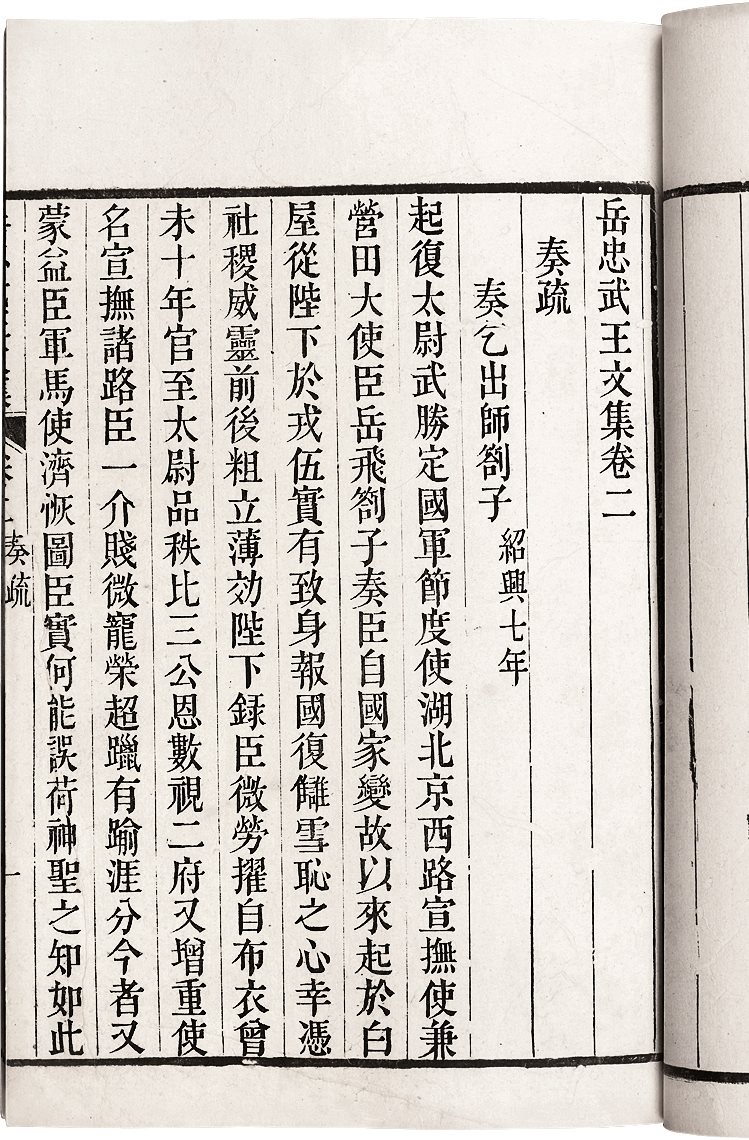 岳忠武王文集卷二
奏疏
奏乞出師劄子 紹興七年
起復太尉武勝定國軍節度使湖北京西路宣撫使兼
營田大使臣岳飛劄子奏臣自國家變故以來起於白
屋從陛下於戎伍實有致身報國復讎雪恥之心幸憑
社稷威靈前後粗立薄効陛下録臣微勞擢自布衣曾
未十年官至太尉品秩比三公恩數視二府又增重使
名宣撫諸路臣一介賤微寵榮超躐有踰涯分今者又
蒙益臣軍馬使濟恢圖臣實何能誤荷神聖之知如此
奏疏
一